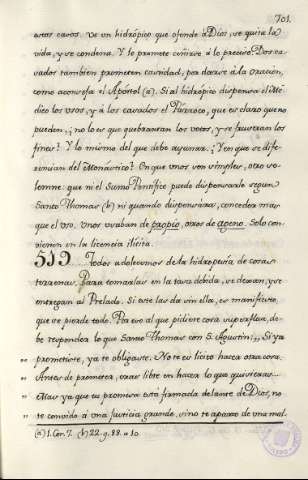 701.
estos casos. Ve un hidrópico que ofende à Dios, se quita la
vida, y se condena. Y lo promete ceñirse â lo preciso. Dos ca-
sados tambien prometen castidad, por darse â la oración,
como aconseja el Apóstol (a). Si al hidrópico dispensara el Me-
dico los usos, y à los casados el Párroco, que es claro que no
pueden, ¿no lo es que quebrantan los votos, y se frustran los
fines? Y lo mismo del que debe ayunar. ¿Y en que se dife-
rencian del Monástico? En que unos son simples, otro so-
lemne que ni el Sumo Pontifice puede dispensarle segun
Santo Thomas (b) ni quando dispensára, conceder mas
que el uso. Unos usaban de propio, otros de ageno. Solo con-
vienen en la licencia ilícita.
519... Todos adolecemos de la hidropesía de cosas
terrenas. Para tomarlas en la tasa debida, se dexan, y se
entregan al Prelado. Si este las da sin ella, es manifiesto,
que se pierde todo. Por eso al que pidiere cosa superflua, de-
be responder lo que Santo Thomas con S. Agustin: „ Si ya
„ prometiste, ya te obligaste. No te es licito hacer otra cosa.
„ Antes de prometer, eras libre en hacer lo que quisieras...
„ Mas ya que tu promesa está firmada delante de Dios, no
„ te convido â una justicia grande, sino te aparto de una mal-
(a) 1. Cor. 7. (b) 22. q. 88. a 10.